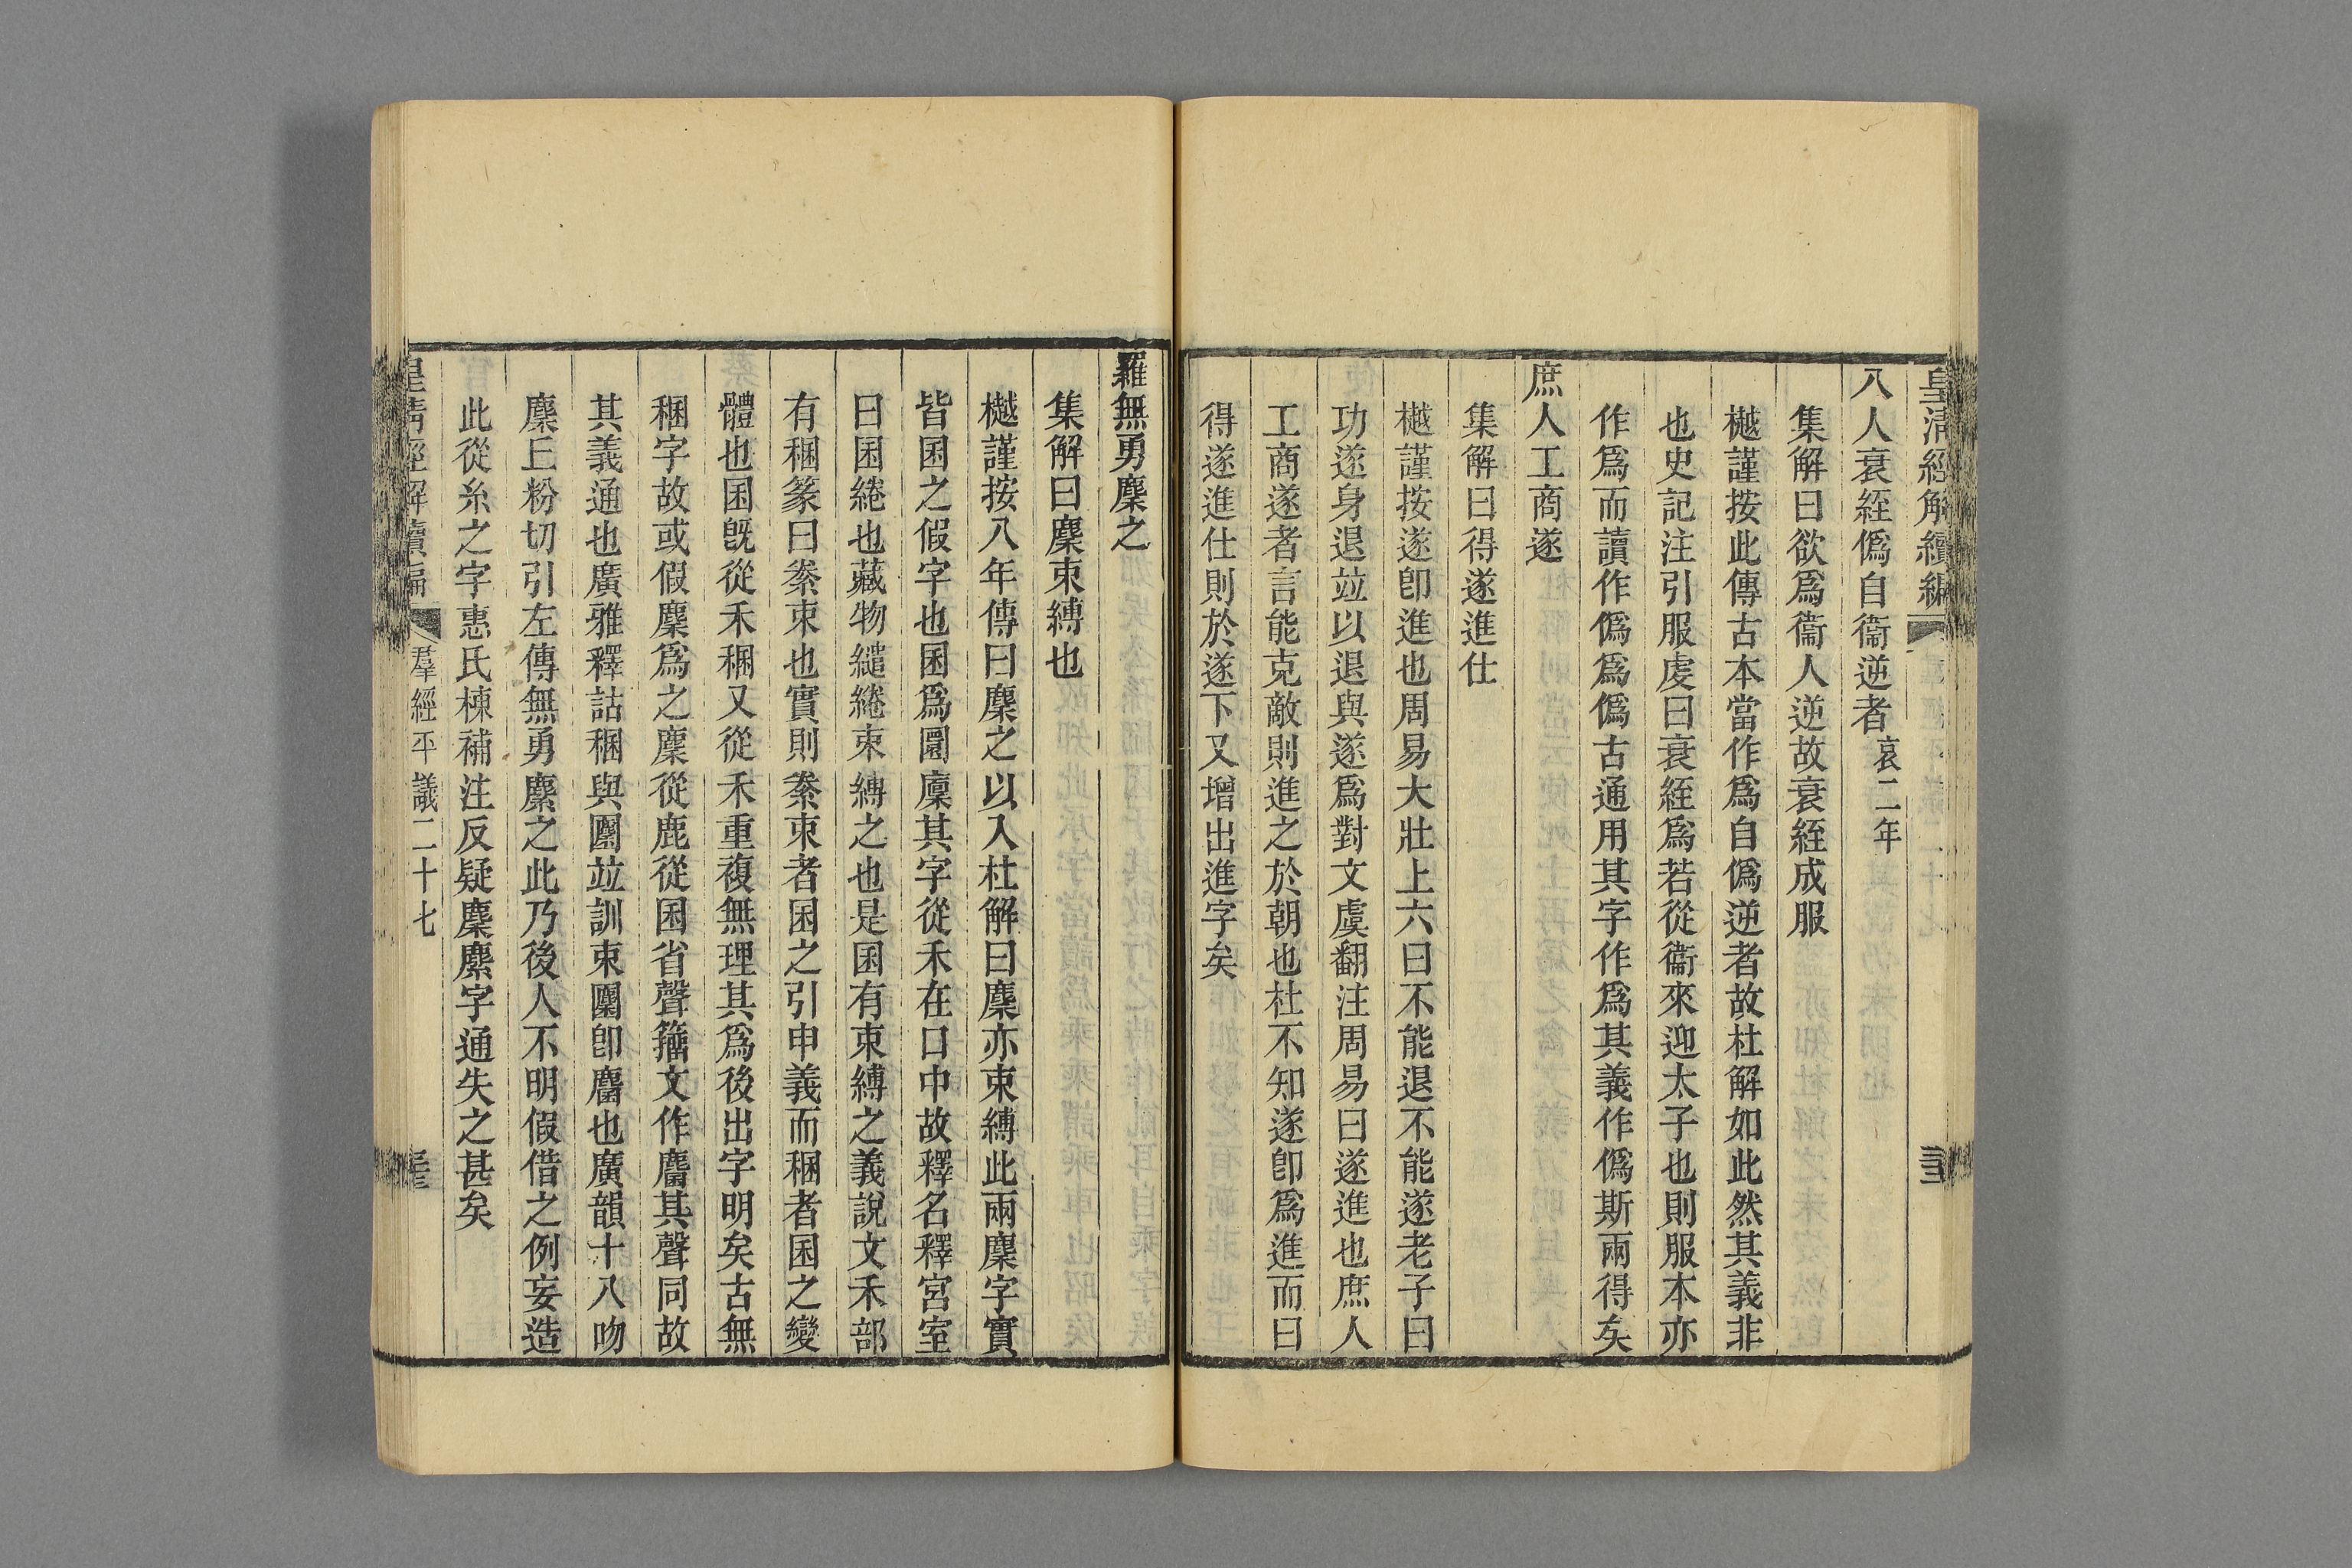 皇清經解續編
八人衰絰僞自衞逆者哀二年
集解曰欲爲衞人逆故衰絰成服
樾謹按此傳古本當作爲自僞逆者故杜解如此然其義非
也史記注引服虔曰衰絰爲若從衞來迎太子也則服本亦
作爲而讀作僞爲僞古通用其字作爲其義作僞斯兩得矣
庶人工商遂
集解曰得遂進仕
樾謹按遂卽進也周易大壯上六曰不能退不能遂老子曰
功遂身退竝以退與遂爲對文虞翻注周易曰遂進也庶人
工商遂者言能克敵則進之於朝也杜不知遂卽爲進而曰
得遂進仕則於遂下又增出進字矣
羅無勇麇之
集解曰麇束縛也
樾謹按八年傳曰麇之以入杜解曰麇亦束縛此兩麇字實
皆囷之假字也囷爲圜廩其字從禾在口中故釋名釋宮室
曰囷綣也藏物繾綣束縛之也是囷有束縛之義說文禾部
有稇篆曰絭束也實則絭束者囷之引申義而稇者囷之變
體也囷旣從禾稇又從禾重複無理其爲後出字明矣古無
稇字故或假麇爲之麇從鹿從囷省聲籀文作麕其聲同故
其義通也廣雅釋詁稇與䵹竝訓束䵹卽麕也廣韻十八吻
麇丘粉切引左傳無勇麇之此乃後人不明假借之例妄造
此從糸之字惠氏棟補注反疑麇字通失之甚矣
皇清經解續編 羣經平議二十七